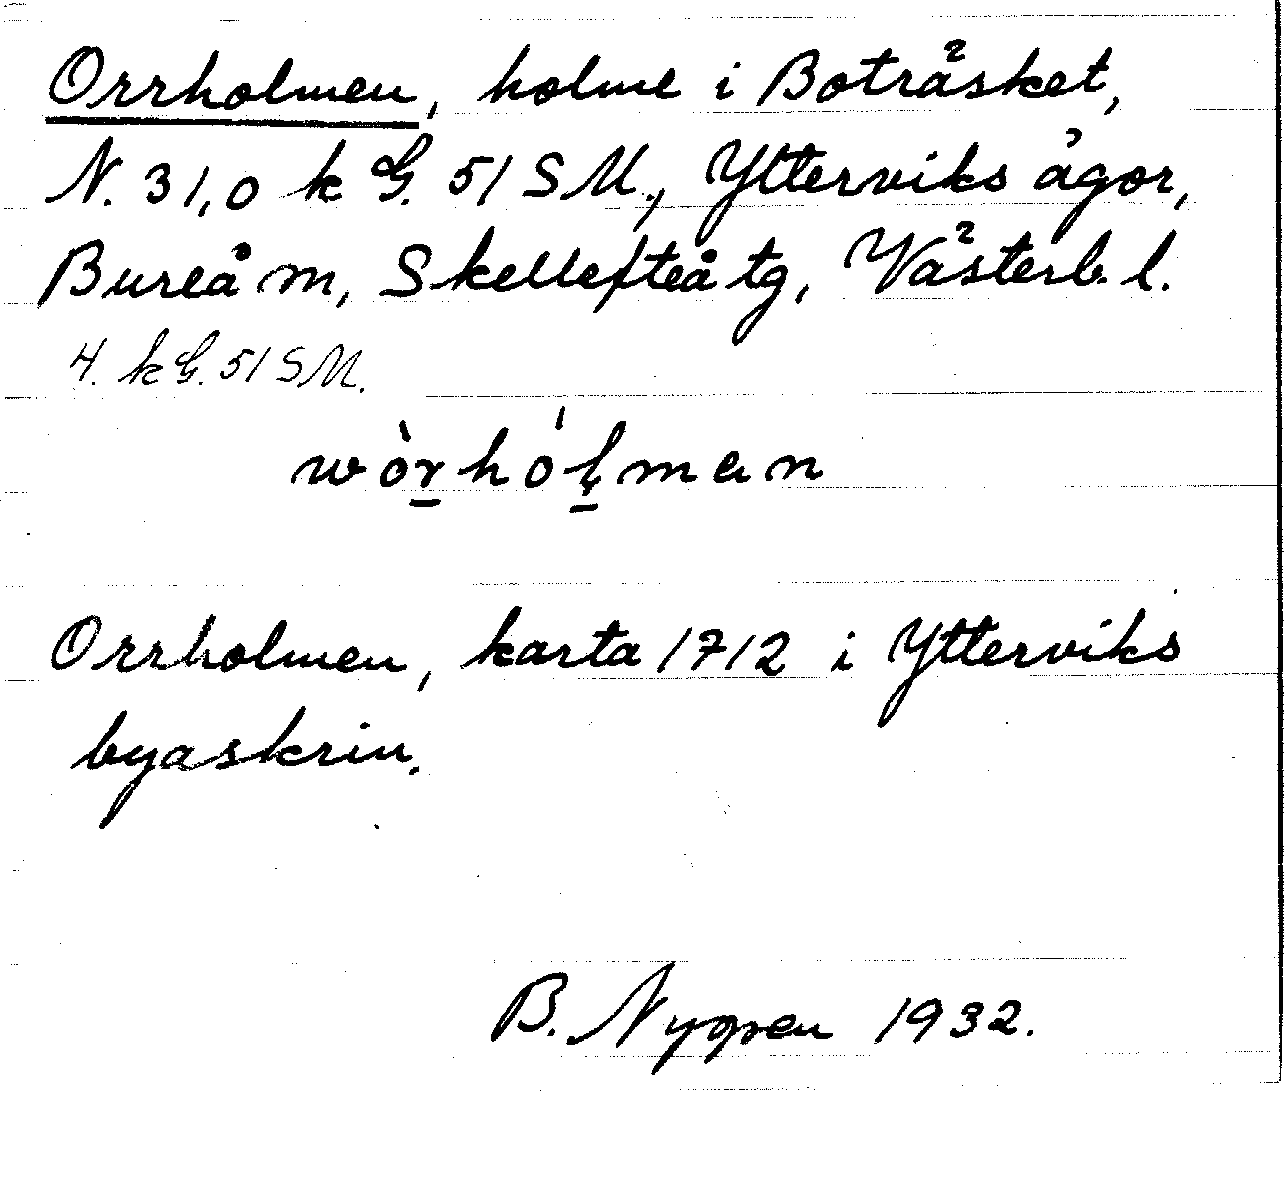 Orrholmen, holme i Boträsket,
N. 31,0 k G. 51 SM., Ytterviks ägor,
Bureå m, Skellefteå tg, Västerb. l.
4. k G. 51 SM.
wòr̲hól̲man
Orrholmen, karta 1712 i Ytterviks
byaskrin.
B. Nygren 1932.